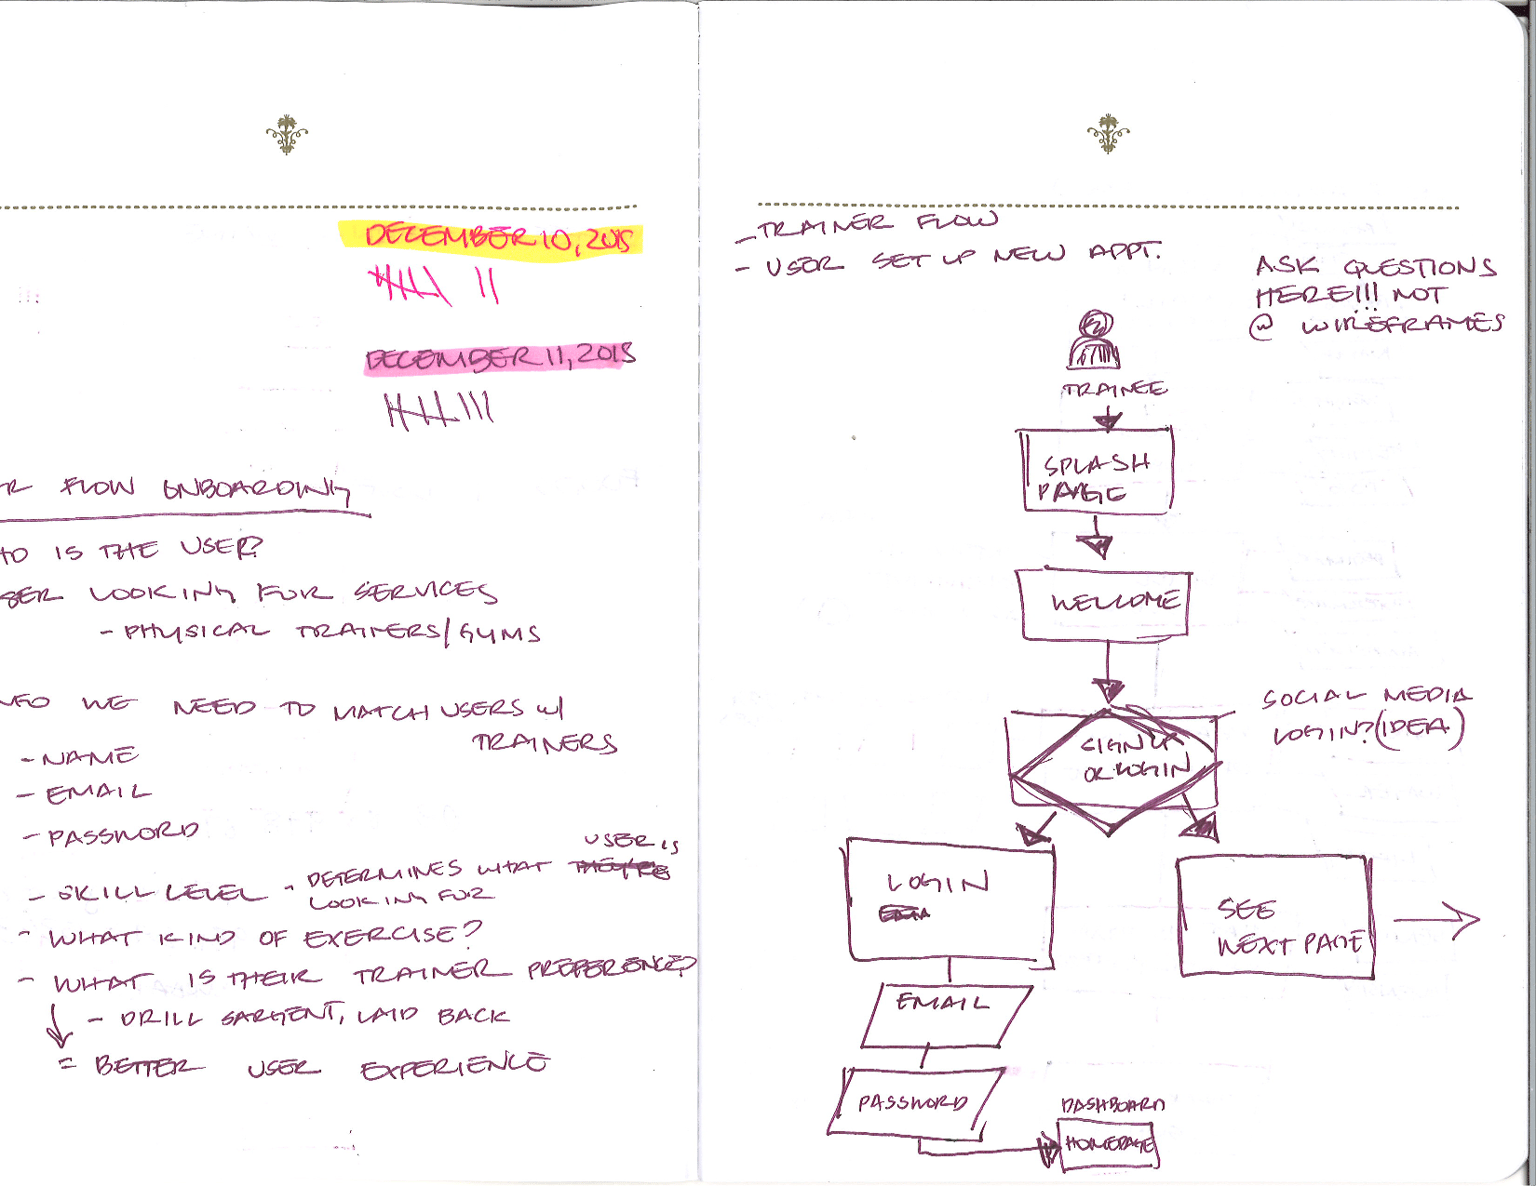 DECEMBER 10, 2015
DECEMBER 11, 2015
ER FLOW ONBOARDING
HO IS THE USER?
SER LOOKING FOR SERVICES
- PHYSICAL TRAINERS/GYMS
NFO WE NEED TO MATCH USERS W/
TRAINERS
- NAME
- EMAIL
- PASSWORD
USER IS
- SKILL LEVEL - DETERMINES WHAT THEY'RE
LOOKING FOR
- WHAT KIND OF EXERCISE?
- WHAT IS THEIR TRAINER PREFERENCE?
- DRILL SARGENT, LAID BACK
= BETTER USER EXPERIENCE
- TRAINER FLOW
- USER SET UP NEW APPT.
ASK QUESTIONS
HERE!!! NOT
@ WIREFRAMES
TRAINEE
SPLASH
PAGE
WELCOME
SOCIAL MEDIA
LOGIN? (IDEA)
SIGN UP
OR LOGIN
LOGIN
SEE
NEXT PAGE
EMAIL
PASSWORD
DASHBOARD
HOMEPAGE